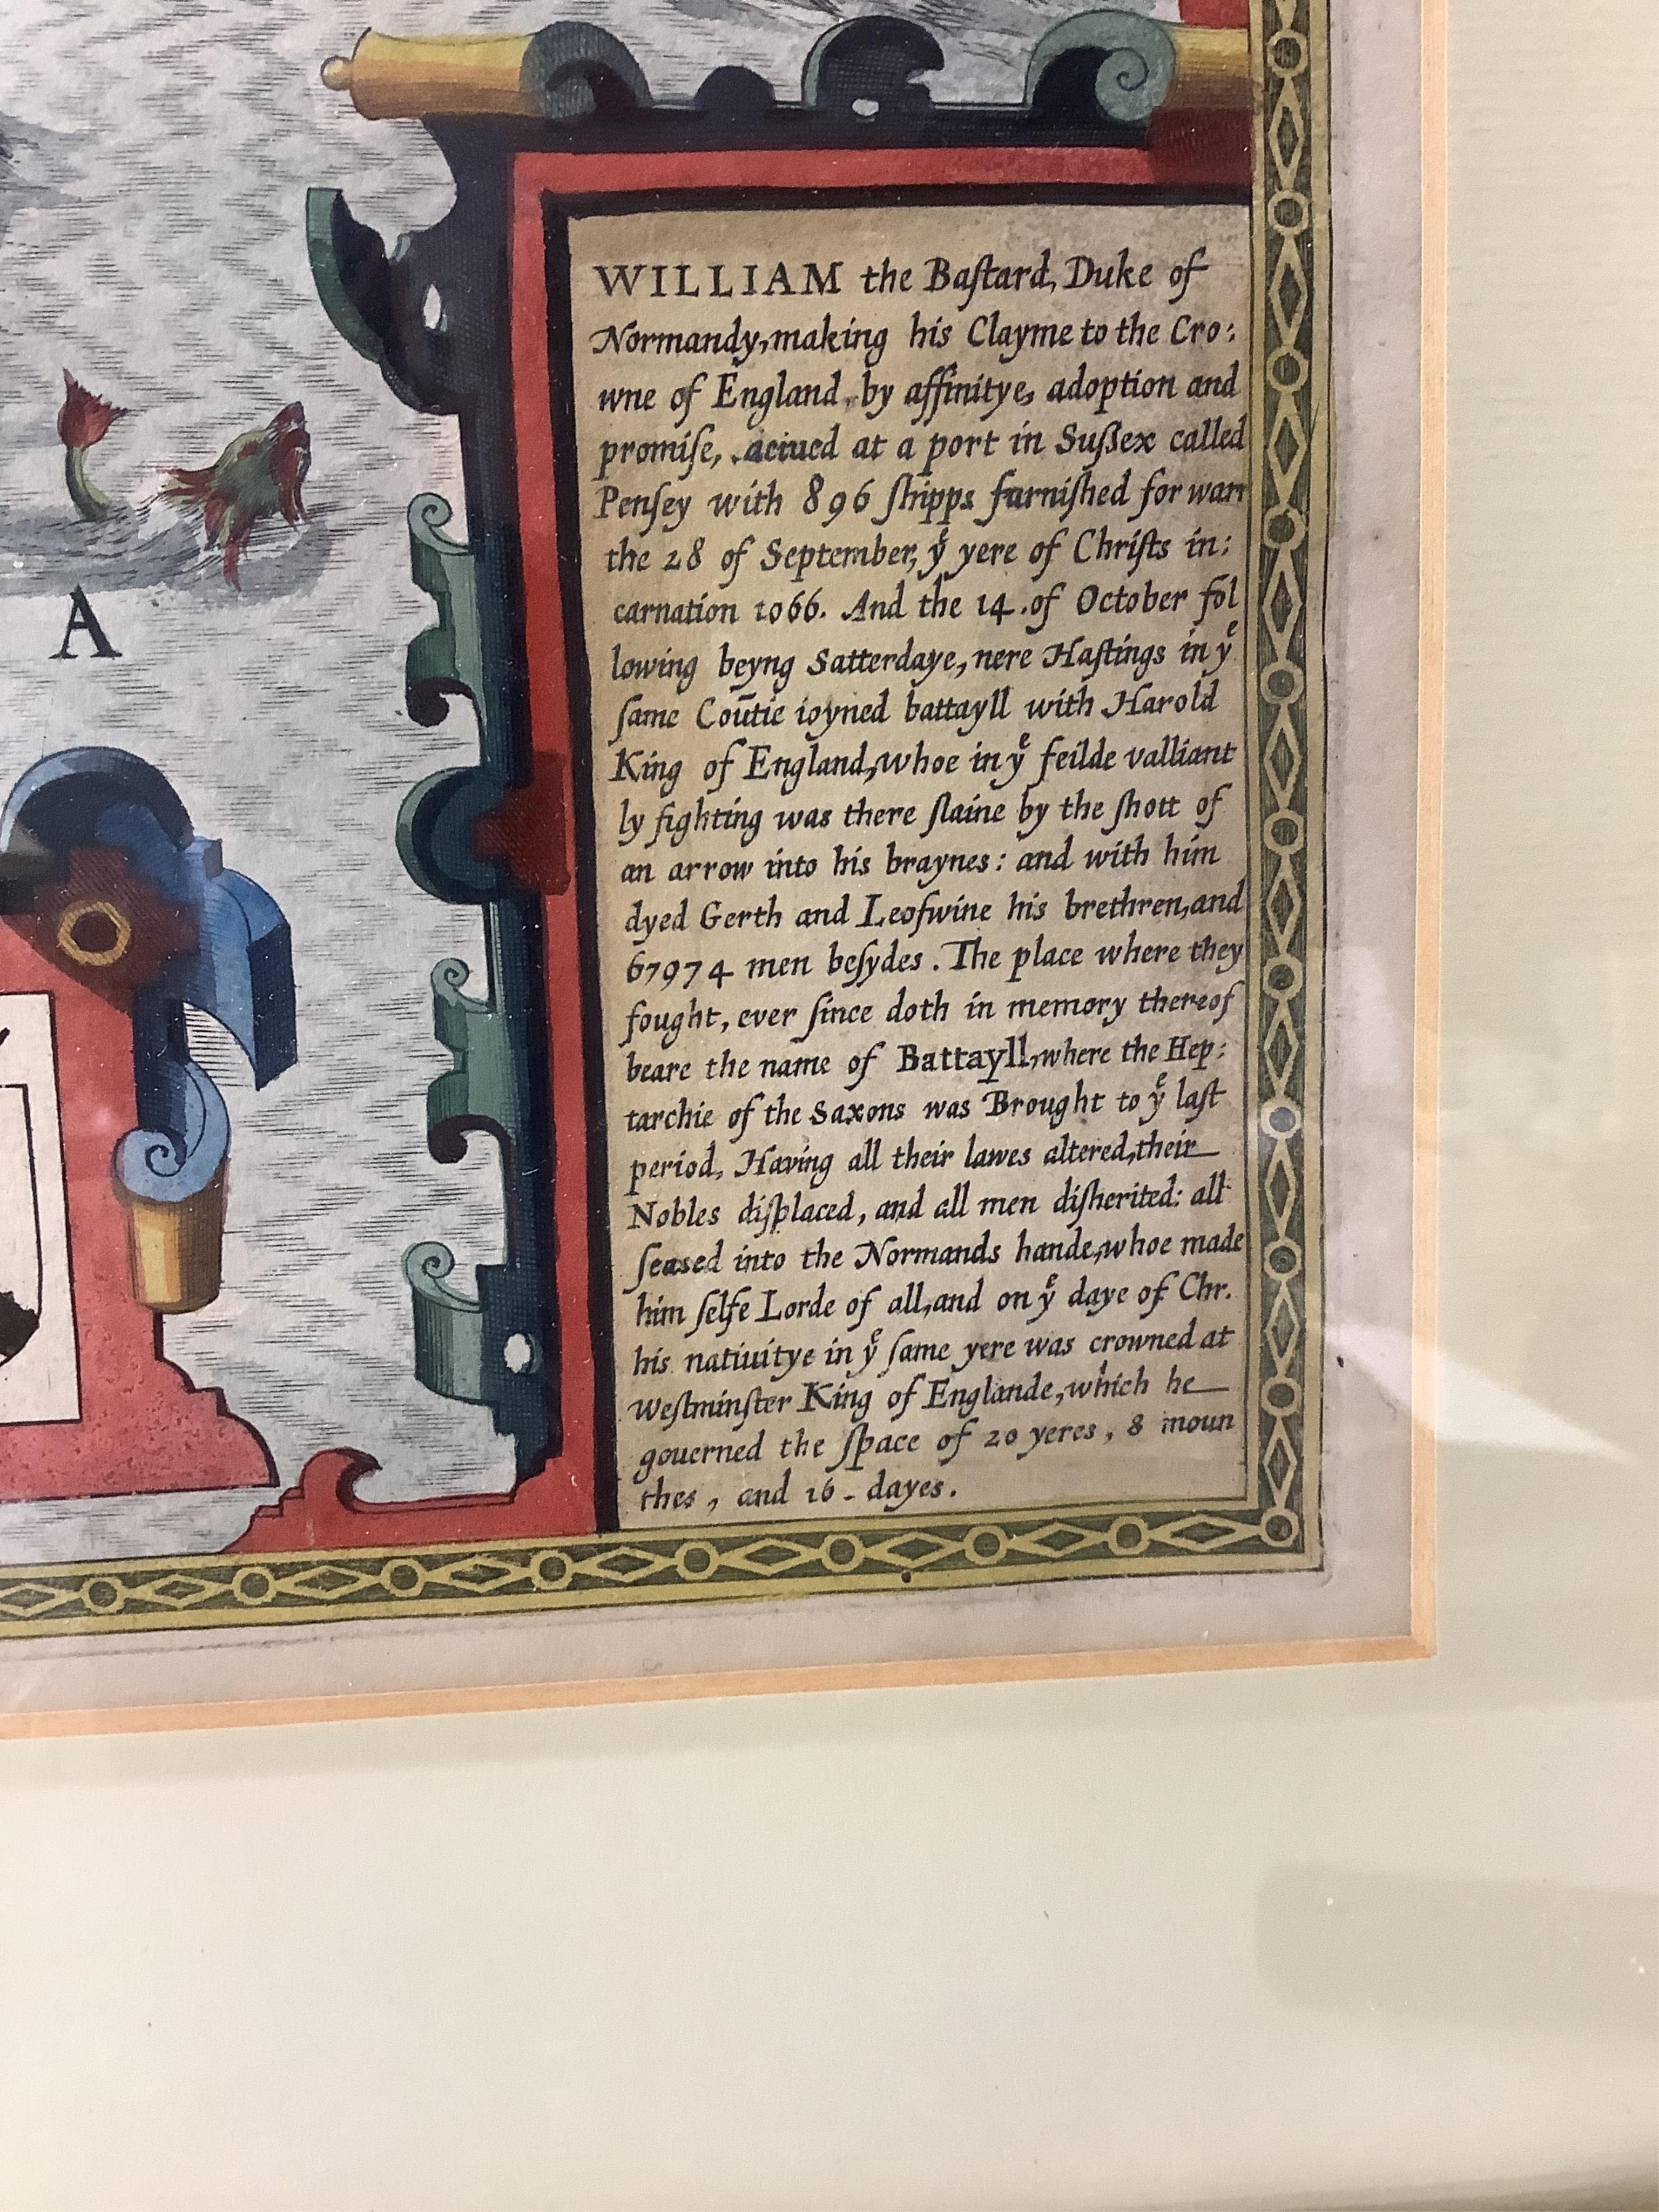 A
WILLIAM the Baſtard, Duke of
Normandy, making his Clayme to the Cro:
wne of England, by affinitye, adoption and
promiſe, at a port in Sußex called
Penſey with 896 ſhipps furniſhed for warr
the 28 of September, yͤ yere of Chriſts in:
carnation 1066. And the 14. of October fol
lowing beyng Satterdaye, nere Haſtings in yͤ
ſame Coūtie ioyned battayll with Harold
King of England, whoe in yͤ feilde valliant
ly fighting was there ſlaine by the ſhott of
an arrow into his braynes: and with him
dyed Gerth and Leofwine his brethren, and
67974 men beſydes. The place where they
fought, ever ſince doth in memory thereof
beare the name of Battayll, where the Hep:
tarchie of the Saxons was Brought to yͤ laſt
period, Having all their lawes altered, their
Nobles diſplaced, and all men diſherited: all
ſeased into the Normands hande, whoe made
him ſelfe Lorde of all, and on yͤ daye of Chr.
his natiuitye in yͤ ſame yere was crowned at
Weſtminſter King of Englande, which he
gouerned the ſpace of 20 yeres, 8 moun
thes, and 16. dayes.